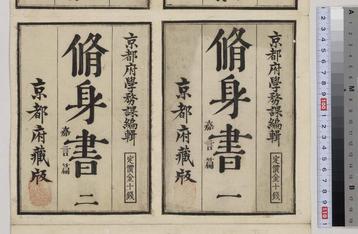 京都府學務課編輯
脩身書 一
嘉言篇
定價金十錢
京都府藏版
京都府學務課編輯
脩身書 二
嘉言篇
定價金十錢
京都府藏版